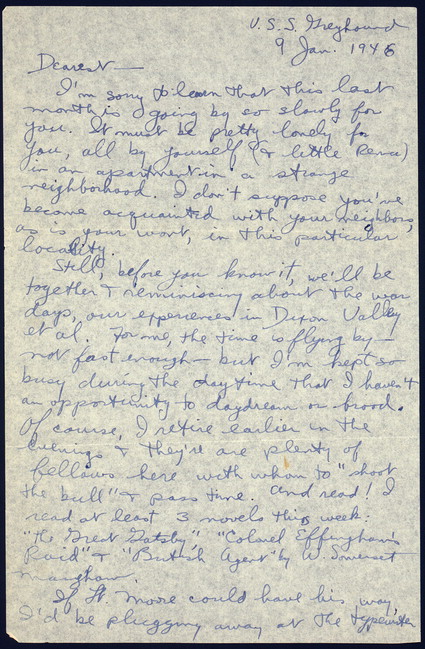 U.S.S. Greyhound
9 Jan. 1946
Dearest —
I'm sorry to learn that this last
month is going by so slowly for
you. It must be pretty lonely for
you, all by yourself (& little Rena)
in an apartment in a strange
neighborhood. I don't suppose you've
become acquainted with your neighbors,
as is your wont, in this particular
locality.
Still, before you know it, we'll be
together & reminiscing about the war
days, our experiences in Dixon Valley
et al. For me, the time is flying by —
not fast enough — but I'm kept so
busy during the daytime that I haven't
an opportunity to daydream or brood.
Of course, I retire earlier in the
evenings & they're are plenty of
fellows here with whom to "shoot
the bull" & pass time. And read! I
read at least 3 novels this week:
"The Great Gatsby," "Colonel Effingham's
Raid" & "British Agent" by W. Somerset
Maugham.
If Lt. Moore could have his way,
I'd be plugging away at the typewriter